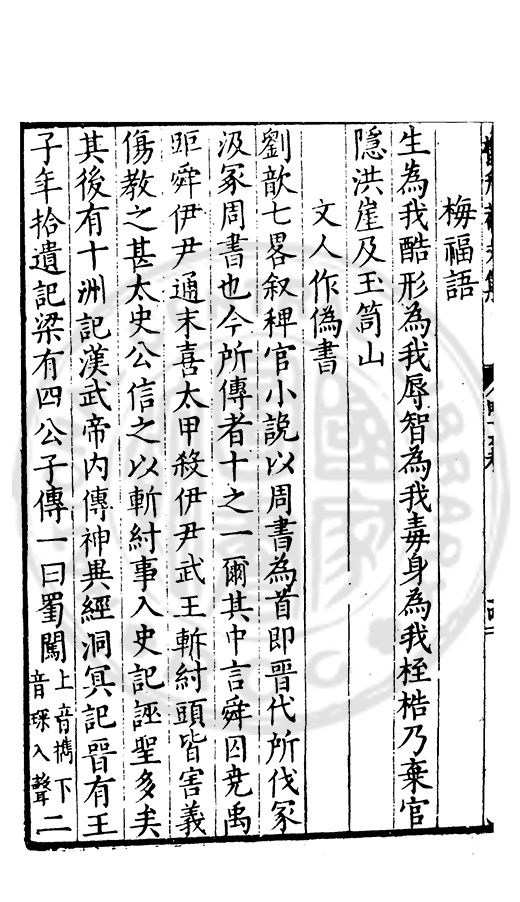 梅福語
生為我酷形為我辱智為我毒身為我桎梏乃棄官
隱洪崖及玉笥山
文人作偽書
劉歆七畧叙稗官小說以周書為首即晋代所伐冢
汲冢周書也今所傳者十之一爾其中言舜囚堯禹
距舜伊尹通末喜太甲殺伊尹武王斬紂頭皆害義
傷教之甚太史公信之以斬紂事入史記誣聖多矣
其後有十洲記漢武帝内傳神異經洞冥記晋有王
子年拾遺記梁有四公子傳一曰蜀闖上音攜下音琛入聲二